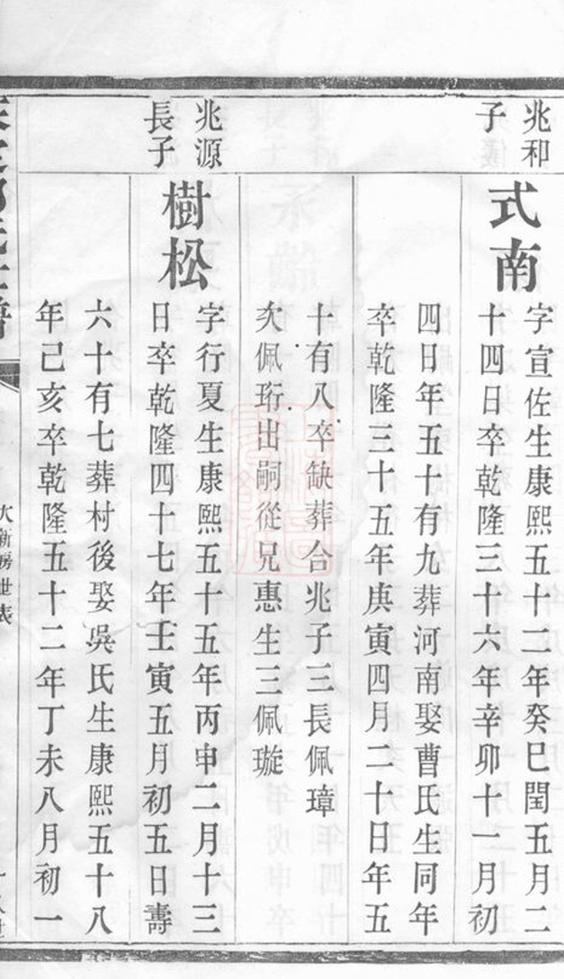 兆和
子
式南
字宣佐生康熙五十二年癸巳閏五月二
十四日卒乾隆三十六年辛卯十一月初
四日年五十有九葬河南娶曹氏生同年
卒乾隆三十五年庚寅四月二十日年五
十有八卒缺葬合兆子三長佩璋
次佩珩出嗣從兄惠生三佩璇
兆源
長子
樹松
字行夏生康熙五十五年丙申二月十三
日卒乾隆四十七年壬寅五月初五日壽
六十有七葬村後娶吳氏生康熙五十八
年己亥卒乾隆五十二年丁未八月初一
新房世表